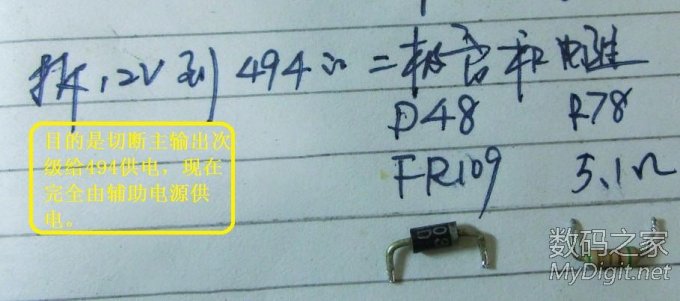 拆12V到494的二极管和电阻
D48 R78
FR109 5.1Ω
目的是切断主输出次
级给494供电，现在
完全由辅助电源供
电。
数码之家
MyDigit.net